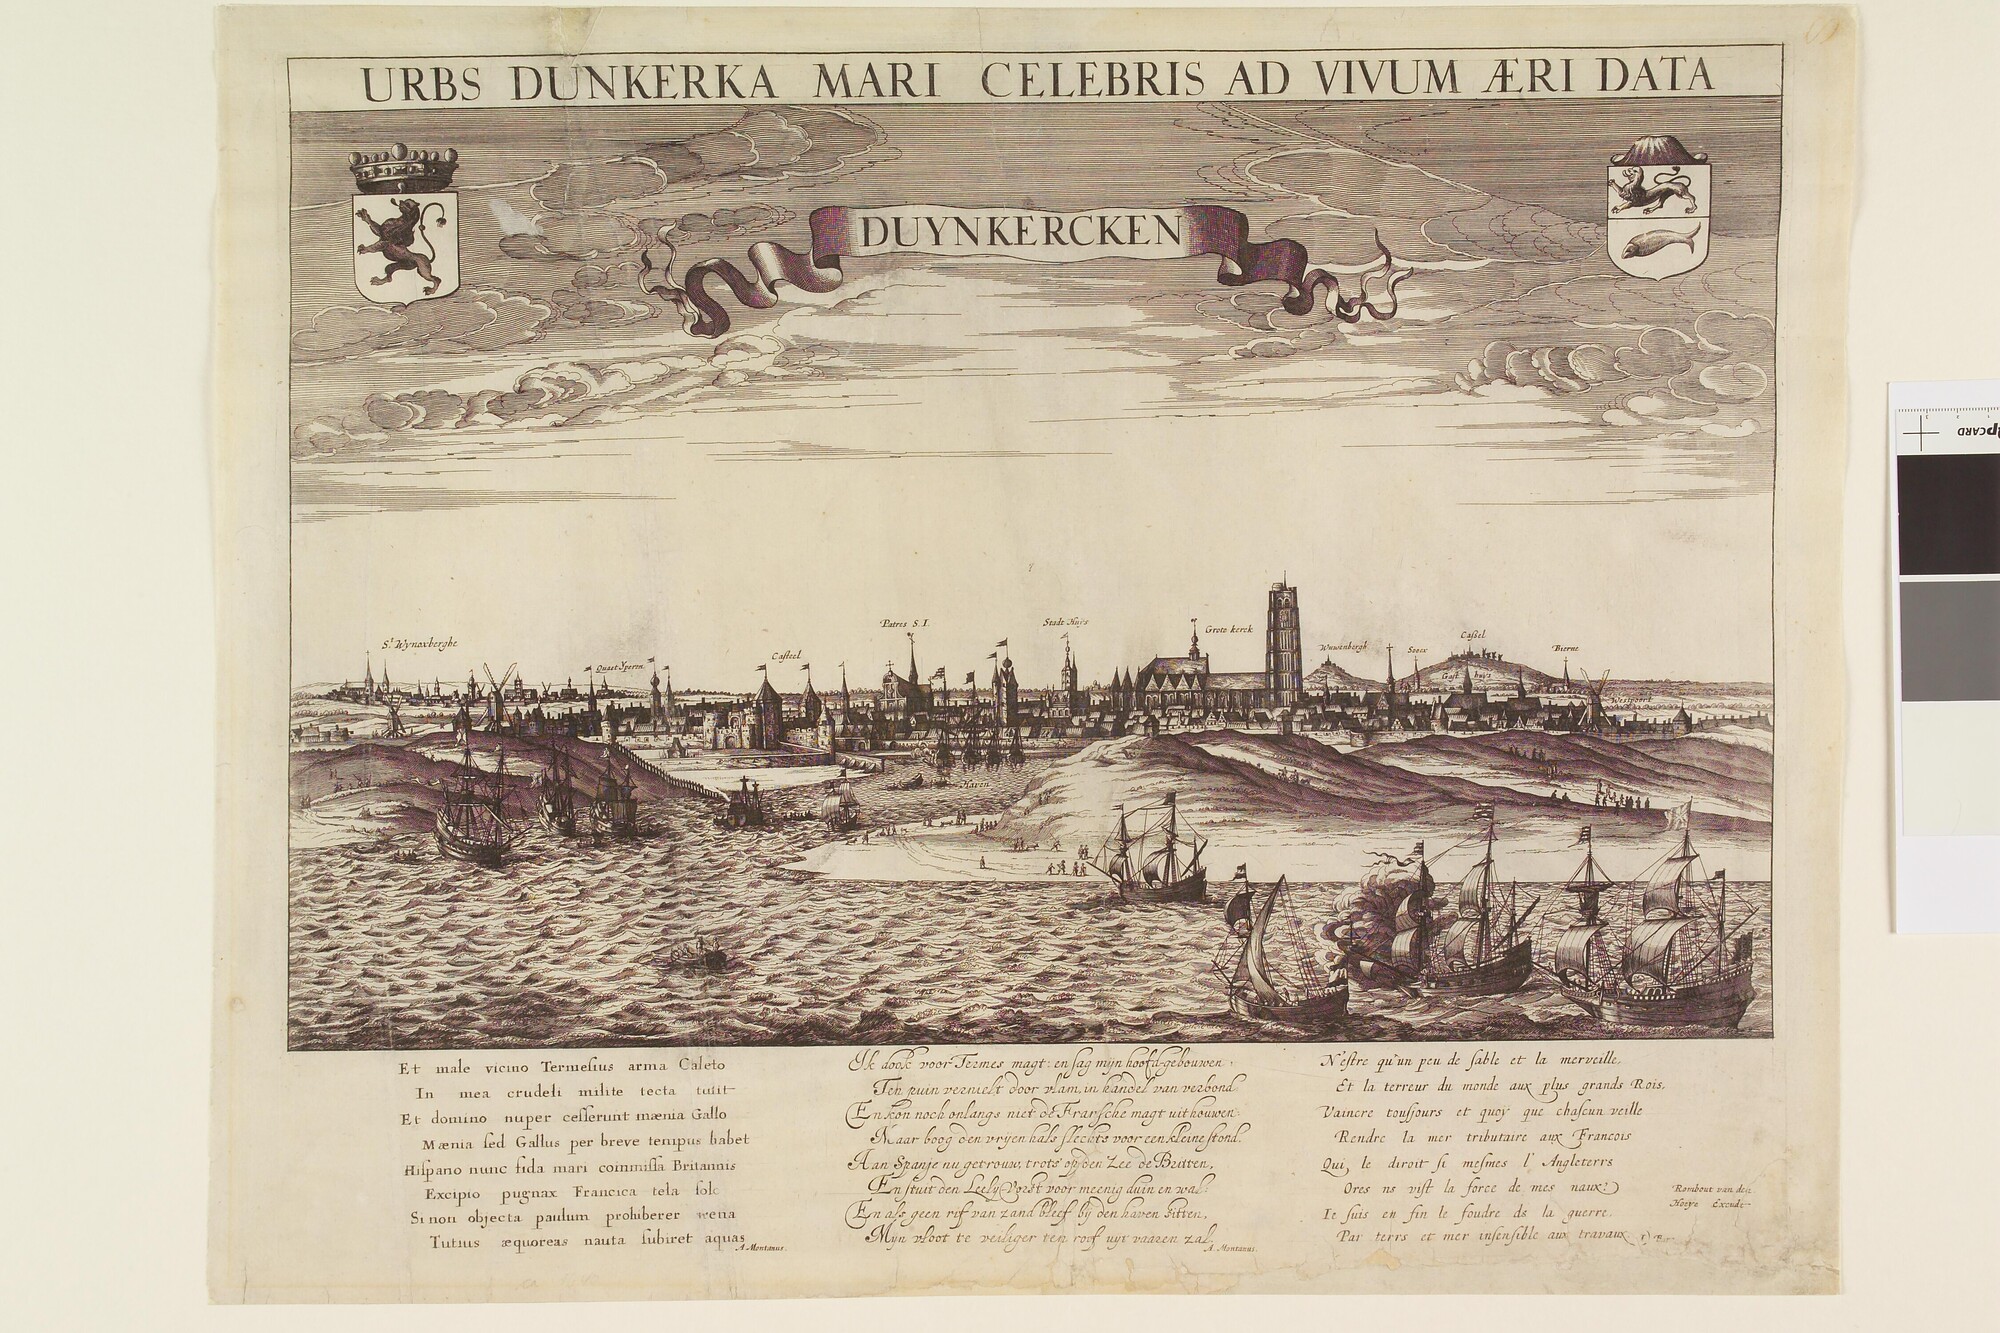 URBS DUNKERKA MARI CELEBRIS AD VIVUM ÆRI DATA
DUYNKERCKEN
St Wynoxberghe
Quaet Yperen
Casteel
Patres S.I.
Stadt Huys
Grote kerck
Wuwenbergh
Soecx
Cassel
Gast huys
Bierne
Westpoort
Haven
Et male vicino Termesius arma Caleto
In mea crudeli milite tecta tulit
Et domino nuper cesserunt mænia Gallo
Mænia sed Gallus per breve tempus habet
Hispano nunc fida mari commissa Britannis
Excipio pugnax Francica tela solo
Si non objecta paulum prohiberer arena
Tutius æquoreas nauta subiret aquas
A. Montanus.
Ik dook voor Termes magt: en sag mijn hoofd-gebouwen
Ten puin vernielt door vlam, in handel van verbond.
En kon noch onlangs niet de Fransche magt uithouwen:
Maar boog den vryen hals slechts voor een kleine stond.
Aan Spanje nu getrouw, trots op den Zee de Britten,
En stuit den Leely-Vorst voor meenig duin en wal:
En als geen rif van zand bleef by den haven sitten,
Mijn vloot te veiliger ten roof uyt vaaren zal.
A. Montanus.
N'estre qu'un peu de sable et la merveille,
Et la terreur du monde aux plus grands Rois,
Vaincre tousjours et quoy que chascun veille
Rendre la mer tributaire aux Francois
Qui, le diroit si mesmes l'Angleterrs
Ores ns vist la force de mes naux?
Ie suis en fin le foudre ds la guerre.
Par terrs et mer insensible aux travaux.
Rombout van den
Hoeye Excudt
CARD